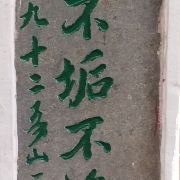 不垢不
九十二山